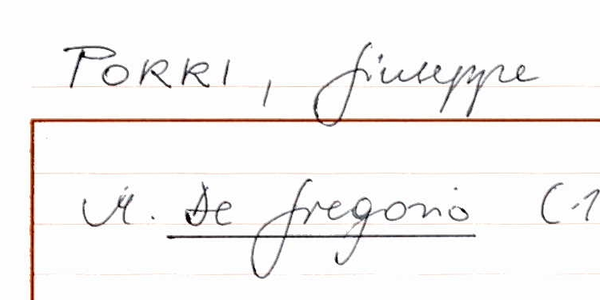 PORRI, Giuseppe
M. De Gregorio (1